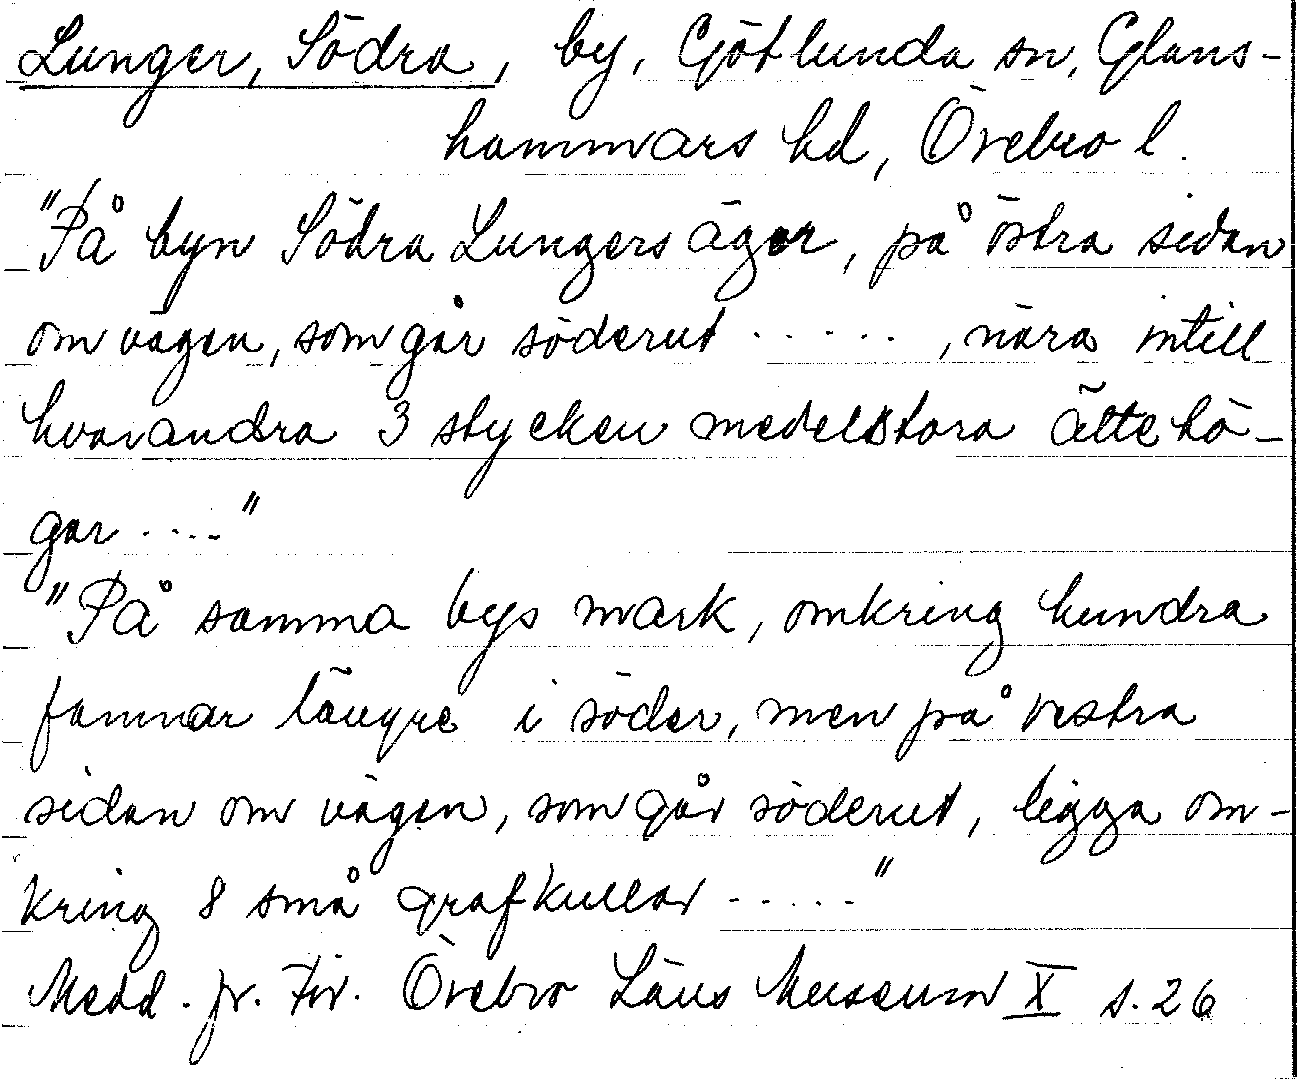 Lunger, Södra, by, Götlunda sn, Glans-
hammars hd, Örebro l.
"På byn Södra Lungers ägor, på östra sidan
om vägen, som går söderut ....., nära intill
hvarandra 3 stycken medelstora ättehö-
gar ...."
"På samma bys mark, omkring hundra
famnar längre i söder, men på vestra
sidan om vägen, som går söderut, ligga om-
kring 8 små grafkullar ....."
Medd. fr. För. Örebro Läns Museum X s. 26